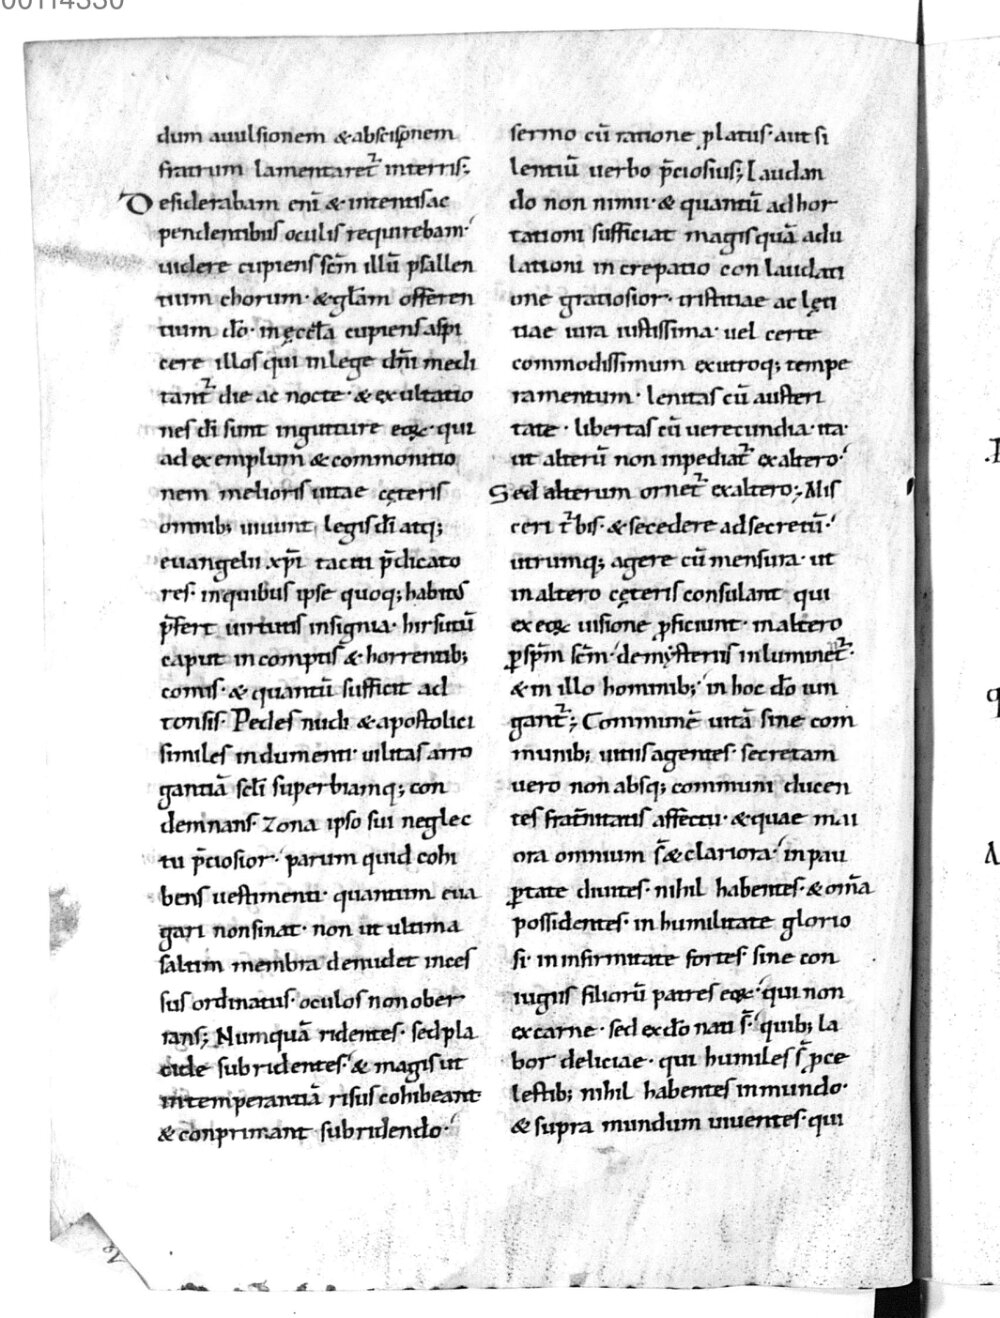 00114330
dum auulsionem & abscisionem
fratrum lamentaret᷑ interris;
Desiderabam eni̅ & intentis ac
pendentibus oculis requirebam·
uidere cupiens sc̅m illu̅ psallen
tium chorum· & gl̅am offeren
tium do̅· in ęccl̅a cupiens aspi
cere illos qui inlege dn̅i medi
tant᷑ die ac nocte· & exultatio
nes di̅ sunt ingutture eoꝝ· qui
ad exemplum & commonitio
nem melioris uitae cęteris
omnib; uiuunt· legis di̅ atq;
euangelii xp̅i taciti p̅dicato
res· inquibus ipse quoq; habitus
p̅fert uirtutis insignia· hirsutu̅
caput incomptis & horrentib;
comis· & quantu̅ sufficit ad
tonsis· Pedes nudi & apostolici
similes indumenti uilitas arro
gantia̅ scl̅i superbiamq; con
demnans· Zona ipso sui neglec
tu p̅ciosior· parum quid cohi
bens uestimenti· quantum eua
gari nonsinat· non ut ultima
saltim membra denudet inces
sus ordinatus· oculos non ober
rans; Numqua̅ ridentes· sed pla
cide subridentes· & magis ut
intemperantia̅ risus cohibeant
& conprimant subridendo·
sermo cu̅ ratione ꝓlatus· aut si
lentiu̅ uerbo p̅ciosius; Laudan
do non nimii· & quantu̅ ad hor
tationi sufficiat magis qua̅ adu
lationi increpatio con laudati
one gratiosior· tristitiae ac lęti
tiae iura iustissima· uel certe
commodissimum exutroq; tempe
ramentum· lenitas cu̅ austeri
tate· libertas cu̅ uerecundia· ita·
ut alteru̅ non inpediat᷑ exaltero·
Sed alterum ornet᷑ exaltero; Mis
ceri t᷑bis· & secedere adsecretu̅·
utrumq; agere cu̅ mensura· ut
inaltero cęteris consulant qui
ex eoꝝ uisione ꝓficiunt· inaltero
ꝑ sp̅m sc̅m· demysteriis inluminet᷑·
& in illo hominib; in hoc do̅ iun
gant᷑; Commune̅ uita̅ sine com
munib; uitiis agentes· secretam
uero non absq; communi ducen
tes frat̅nitatis affectu· & quae mai
ora omnium s̅ & clariora· in pau
ꝑtate diuites· nihil habentes· & om̅a
possidentes· in humilitate glorio
si· in infirmitate fortes· sine con
iugiis filioru̅ patres eoꝝ· qui non
excarne· sed ex do̅ nati s̅· quib; la
bor deliciae· qui humiles s̅ ꝓ ce
lestib; nihil habentes inmundo·
& supra mundum uiuentes· qui